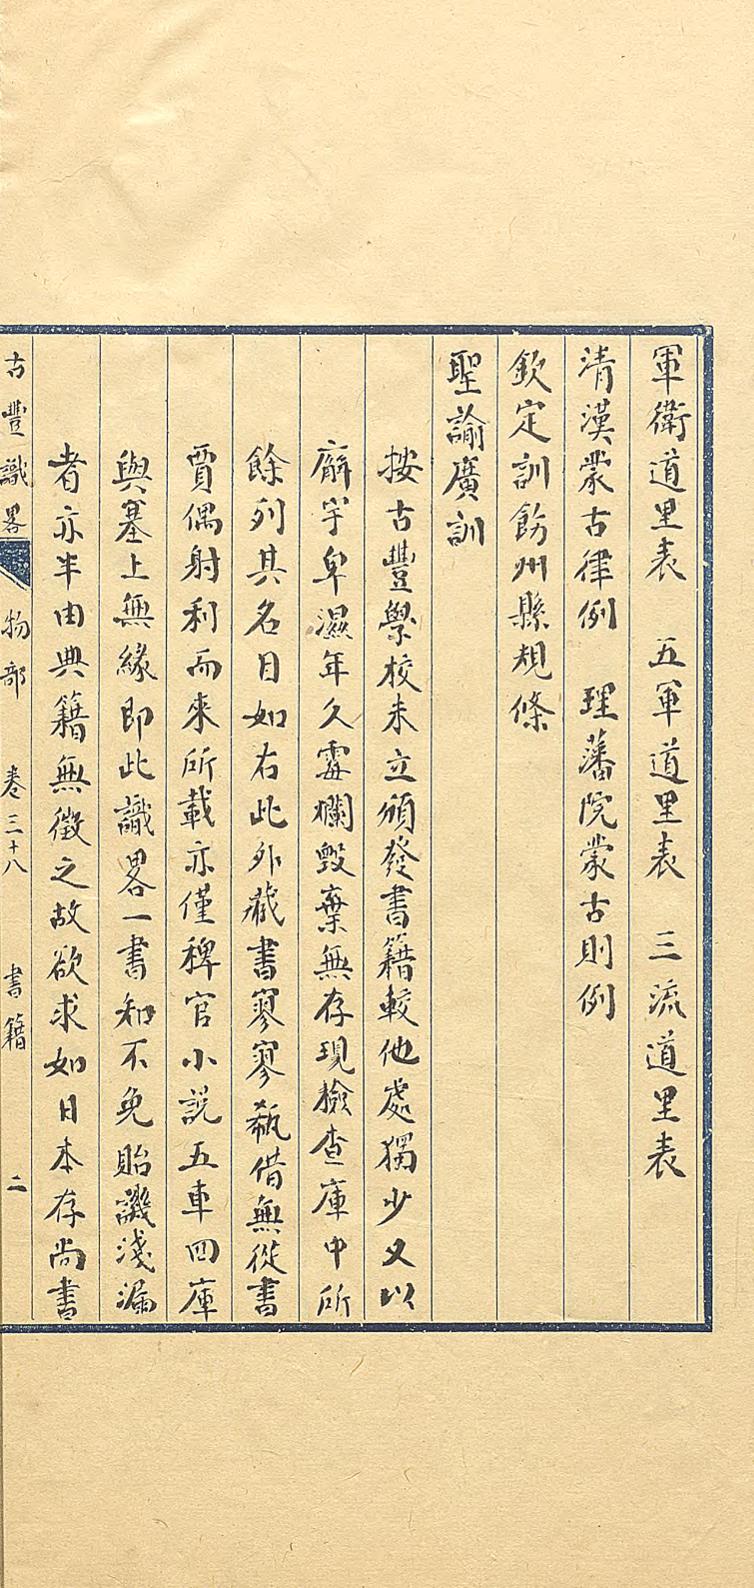 軍衛道里表　五軍道里表　三流道里表
清漢蒙古律例　理藩院蒙古則例
欽定訓飭州縣規條
聖諭廣訓
按古豐學校未立頒發書籍較他處獨少又以
廨宇卑濕年久霉爛毀棄無存現檢查庫中所
餘列其名目如右此外藏書寥寥瓻借無從書
賈偶射利而來所載亦僅稗官小說五車四庫
與塞上無緣即此識畧一書知不免貽譏淺漏
者亦半由典籍無徵之故欲求如日本存尚書
古豐識畧　物部　卷三十八　書籍　二